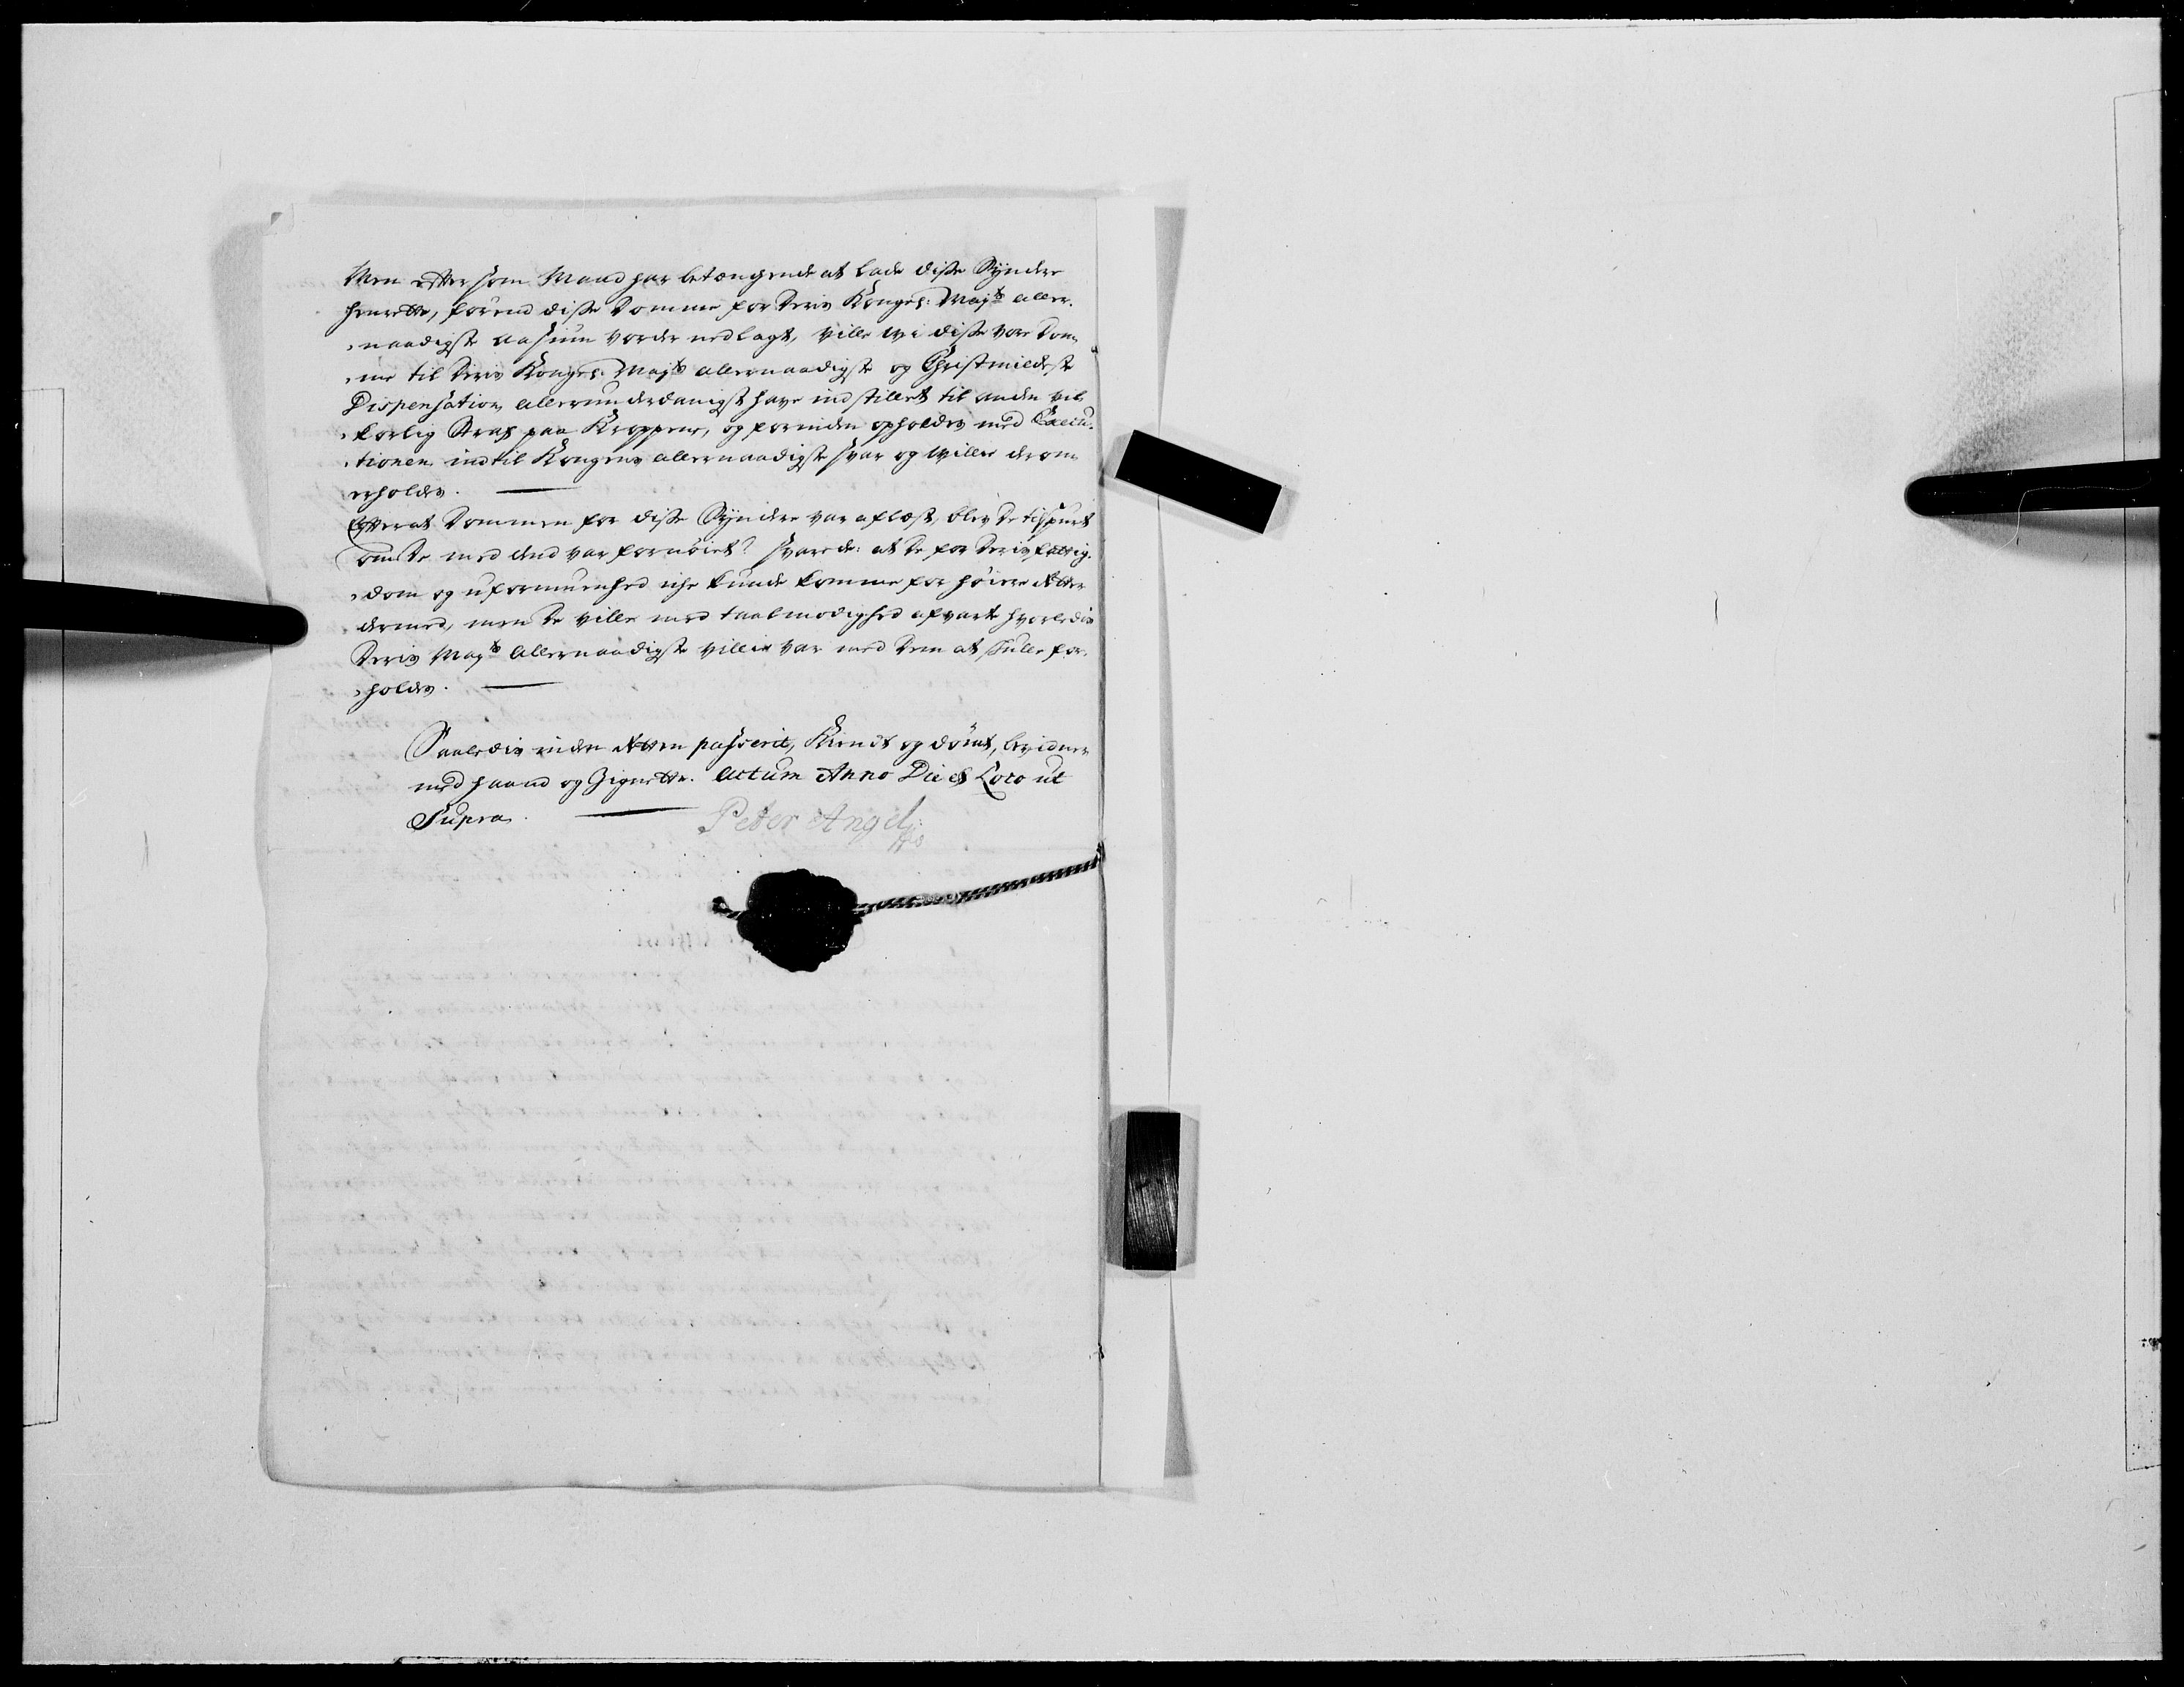 Men efftersom Mand har betengende at lade disse Syndere
henrette, førend disse Domme for Deris Konges: Majts aller¬
naadigste Aasiun vorder nedlagt, ville wi disse vore Dom¬
me til Deris Konges: Majts allernaadigste og Christmildeste
Dispensation allerunderdanigst have indstillet til anden vil¬
korlig Straf paa Kroppene, og forinden opholdes med Execu¬
tionen indtil Kongens allernaadigste svar og Willie derom
erholdes.
Efterat Dommen for disse Syndere var aflæst, blev De tilspurt
om De med dend var fornøiet? svarede: at De for Deris fattig¬
dom og uformuenhed iche kunde komme for høiere Retter
dermed, men De ville med taalmodighed afvarte hvorledis
Deris Majts Allernaadigste villie var med Dem at skulle for¬
holdes.
Saaledis inden Retten passerit, Kiendt og dømt, bevidner
med haand og Zignette. Actum Anno Die et Loco ut
Supra.
Peter Angell